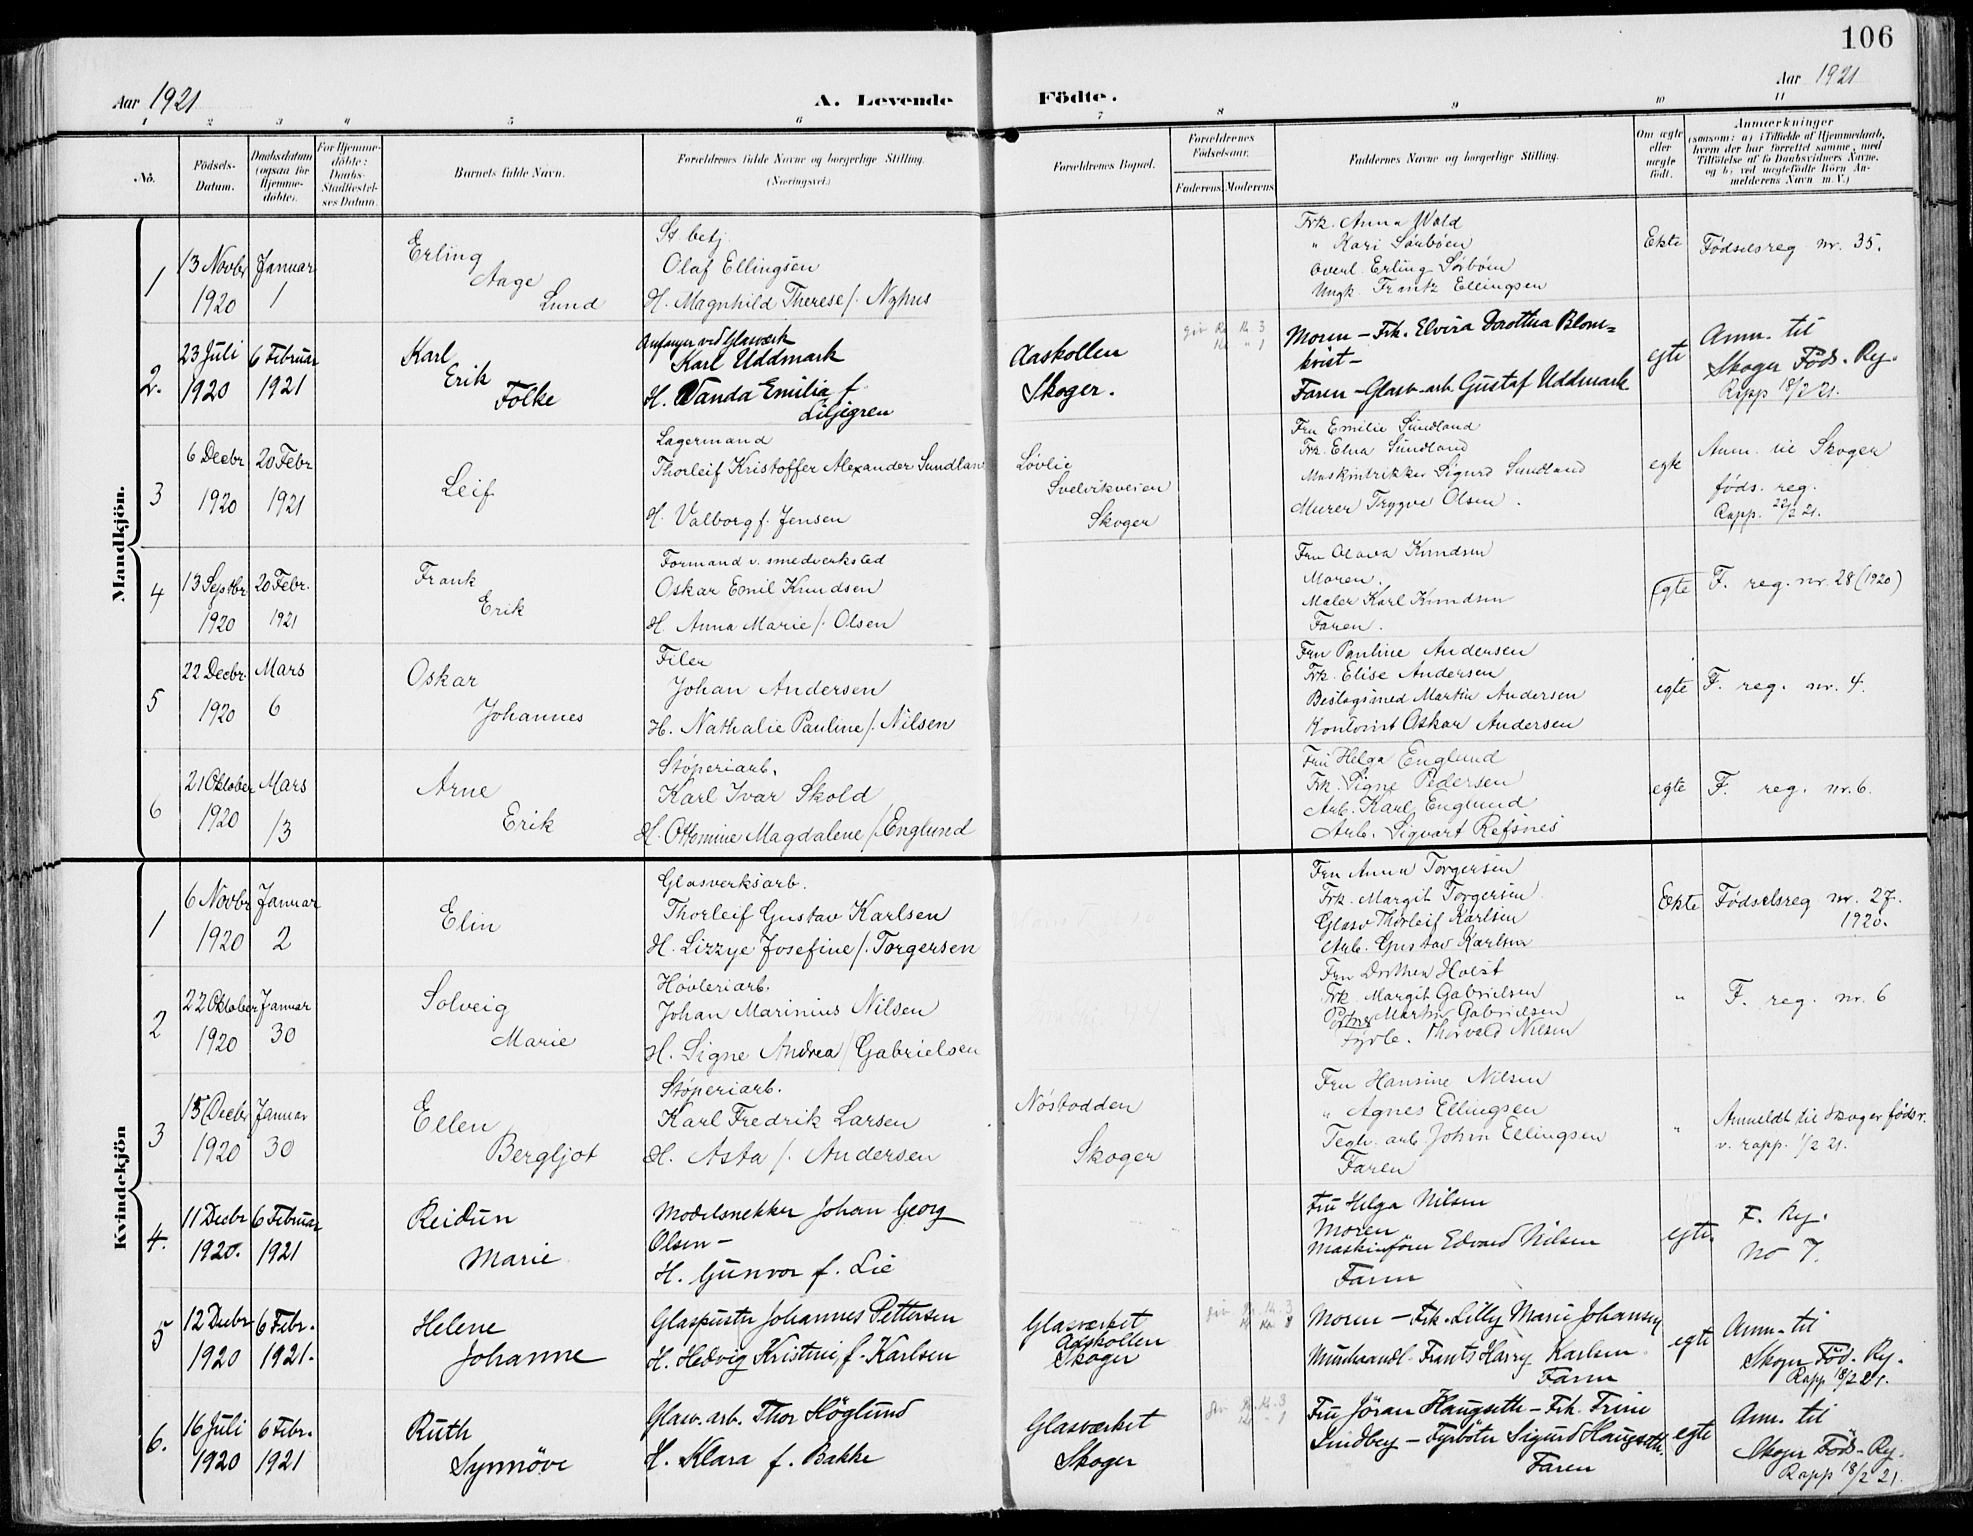 106
Aar 1921
A. Levende Födte.
Aar 1921
1 2 3 4 5 6 7 8 9 10 11
No.
Födsels-
Datum.
Daabsdatum
(ogsaa for
Hjemme-
döbte).
For Hjemme-
döbte:
Daabs-
Stadfæstel-
ses Datum.
Barnets fulde Navn.
Forældrenes fulde Navne og borgerlige Stilling.
(Næringsvei.)
Forældrenes Bopæl.
Forældrenes
Födselsaar.
Faderens. Moderens.
Faddernes Navne og borgerlige Stilling.
Om ægte
eller
uægte
födt.
Anmærkninger
(saasom: a) i Tilfælde af Hjemmedaab,
hvem der har forrettet samme, med
Tilföielse af to Daabsvidners Navne,
og b) ved uægtefödte Börn An-
melderens Navn m. V.)
Mandkjön.
1
13 Novbr
1920
Januar
1
Erling
Aage
Lund
St betj.
Olaf Ellingsen
H. Magnhild Therese f. Nyhus
Frk. Anna Wold
" Kari Sørbøen
Overl. Erling Sørbøen
Ungk. Frantz Ellingsen
Ekte
Fødselsreg nr. 35.
2.
23 Juli
1920
6 Februar
1921
Karl
Erik
Folke
Anfanger ved Glasværk
Karl Uddmark
H. Vanda Emilia f.
Liljegren
Aaskollen
Skoger.
Moren - Frk. Elvira Dorothea Blom=
kvist -
Faren - Glasv. arb. Gustaf Uddmark
egte
Anm. til
Skoger Föd. Reg.
Rapp 18/2 21.
3
6 Decbr
1920
20 Febr
1921
Leif
Lagermand
Thorleif Kristoffer Alexander Sundland
H. Valborg f. Jensen
Løvlie
Svelvikveien
Skoger
Fru Emilie Sundland
Frk. Elna Sundland
Maskintrikker Sigurd Sundland
Murer Trygve Olsen.
egte
Anm. til Skoger
føds. reg.
Rapp. 22/2 21.
4
13 Septbr.
1920
20 Febr.
1921
Frank
Erik
Formand v. smedverksted
Oskar Emil Knudsen
H. Anna Marie f. Olsen
Fru Olava Knudsen
Moren.
Maler Karl Knudsen
Faren.
egte
F. reg. nr. 28 (1920)
5
22 Decbr.
1920
Mars
6
Oskar
Johannes
Filer
Johan Andersen
H. Nathalie Pauline f. Nilsen
Fru Pauline Andersen
Frk. Elise Andersen
Beslagsmed Martin Andersen
Kontorist Oskar Andersen
egte
F. reg. nr. 4.
6
21 Oktober
1920
Mars
13
Arne
Erik
Støperiarb.
Karl Ivar Skold
H. Ottomine Magdalene f. Englund
Fru Helga Englund
Frk. Signe Pedersen
Arb. Karl Englund
Arb. Sigvart Refsnes
egte
F. reg. nr. 6.
Kvindekjön
1
6 Novbr
1920
Januar
2
Elin
Glasverksarb.
Thorleif Gustav Karlsen
H. Lizzye Josefine f. Torgersen
Fru Anna Torgersen
Frk. Margit Torgersen
Glasv Thorleif Karlsen
Arb. Gustav Karlsen
Ekte
Fødselsreg nr. 27.
1920.
2
22 Oktober
1920
Januar
30
Solveig
Marie
Høvleriarb.
Johan Marinius Nilsen
H. Signe Andrea f. Gabrielsen
Fru Dorthea Holst
Frk. Margit Gabrielsen
Martin Gabrielsen
Fyrb. Thorvald Nilsen
"
F. reg. nr. 6
3
15 Decbr
1920
Januar
30
Ellen
Bergljot
Støperiarb.
Karl Fredrik Larsen
H. Asta f. Andersen
Nøstodden
Skoger
Fru Hansine Nilsen
" Agnes Ellingsen
Teglv. arb. Johan Ellingsen
Faren
"
Anmeldt til Skoger føds r.
v. rapp. 1/2 21.
4.
11 Decbr
1920.
6 Februar
1921
Reidun
Marie
Modelsnekker Johan Georg
Olsen -
H. Gunvor f. Lie
Fru Helga Nilsen
Moren
Maskinförer Edvard Nilsen
Faren
egte.
F. Reg.
No 7.
5
12 Decbr
1920
6 Febr.
1921.
Helene
Johanne
Glaspuster Johannes Pettersen
H. Hedvig Kristine f. Karlsen
Glasværket
Aaskollen
Skoger
Moren - Frk. Lilly Marie Johansen
Frants Harry Karlsen
Faren
egte
Anm. til
Skoger Föd. Reg.
Rapp 18/2 21.
6.
16 Juli
1920
6 Febr.
1921
Ruth
Synnöve
Glasv. arb. Thor Höglund
H. Klara f. Bakke
Glasværket
Skoger
Fru Jöran Haugseth - Frk. Trine
Lindbey - Fyrböter Sigurd Haugseth
Faren
egte
Anm. til
Skoger Föds. Reg.
Rapp 18/2 21.